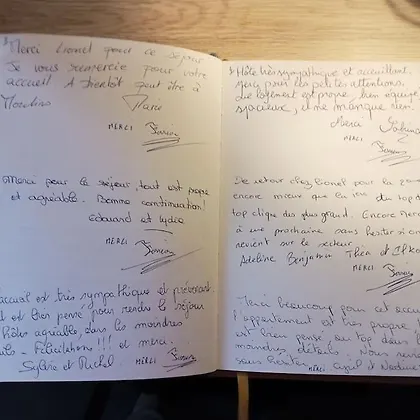 Merci Lionel pour ce séjour
Je vous remercie pour votre
accueil A bientôt peut être à
Moulins
MERCI
Merci pour le séjour, tout est propre
et agréable. Bonne continuation!
Edouard et Lydie
MERCI
accueil est très sympathique et prévenant
et bien pensé pour rendre le séjour
hôtes agréable, dans les moindres
Félicitations!!! et merci.
Sylvie et Michel MERCI
Hôte très sympathique et accueillant,
Merci pour les petites attentions.
Le logement est propre bien équipé
spacieux, il ne manque rien.
Merci
MERCI
De retour chez Lionel pour la 2
encore mieux que la
top clique des plus grand. Encore
à une prochaine sans hésiter si on
revient sur le secteur
Adeline Benjamin Théa et
MERCI
Merci beaucoup pour cet accueil
l'appartement est très propre
est bien pensé au top dans les
moindres détails. Nous
sans hésiter MERCI et